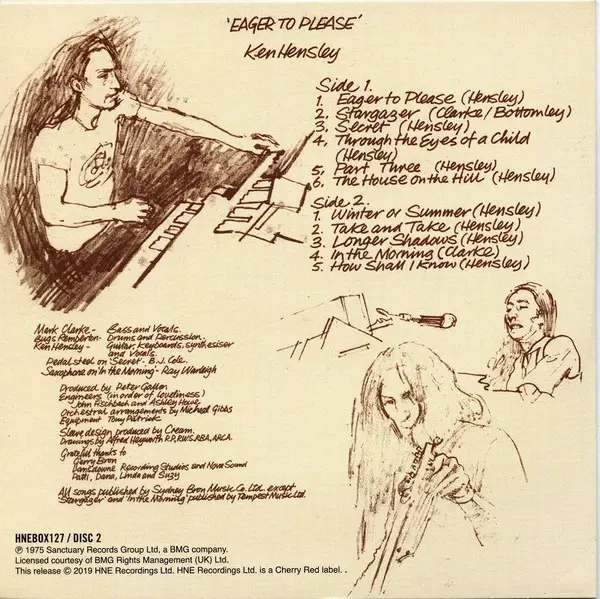 'EAGER TO PLEASE'
Ken Hensley
Side 1.
1. Eager to Please (Hensley)
2. Stargazer (Clarke/Bottomley)
3. Secret (Hensley)
4. Through the Eyes of a Child
(Hensley)
5. Part Three (Hensley)
6. The House on the Hill (Hensley)
Side 2.
1. Winter or Summer (Hensley)
2. Take and Take (Hensley)
3. Longer Shadows (Hensley)
4. In the Morning (Clarke)
5. How Shall I Know (Hensley)
Mark Clarke - Bass and Vocals.
Bugs Pemberton - Drums and Percussion.
Ken Hensley - Guitar, Keyboards, synthesiser
and Vocals.
Pedal steel on 'Secret' - B.J. Cole.
Saxophone on 'In the Morning' - Ray Warleigh
Produced by Peter Gallen
Engineers (in order of loveliness)
John Fischbach and Ashley Howe
Orchestral arrangements by Michael Gibbs
Equipment Tony Patrick
Sleeve design produced by Cream.
Drawings by Alfred Heyworth R.P., R.W.S. R.B.A., A.R.C.A.
Grateful thanks to
Gerry Bron
Lansdowne Recording Studios and Nova Sound
Patti, Dana, Linda and Suzy
All songs published by Sydney Bron Music Co. Ltd. except
'Stargazer' and 'In the Morning' published by Tempest Music Ltd.
HNEBOX127 / DISC 2
℗ 1975 Sanctuary Records Group Ltd, a BMG company.
Licensed courtesy of BMG Rights Management (UK) Ltd.
This release © 2019 HNE Recordings Ltd. HNE Recordings Ltd. is a Cherry Red label. .